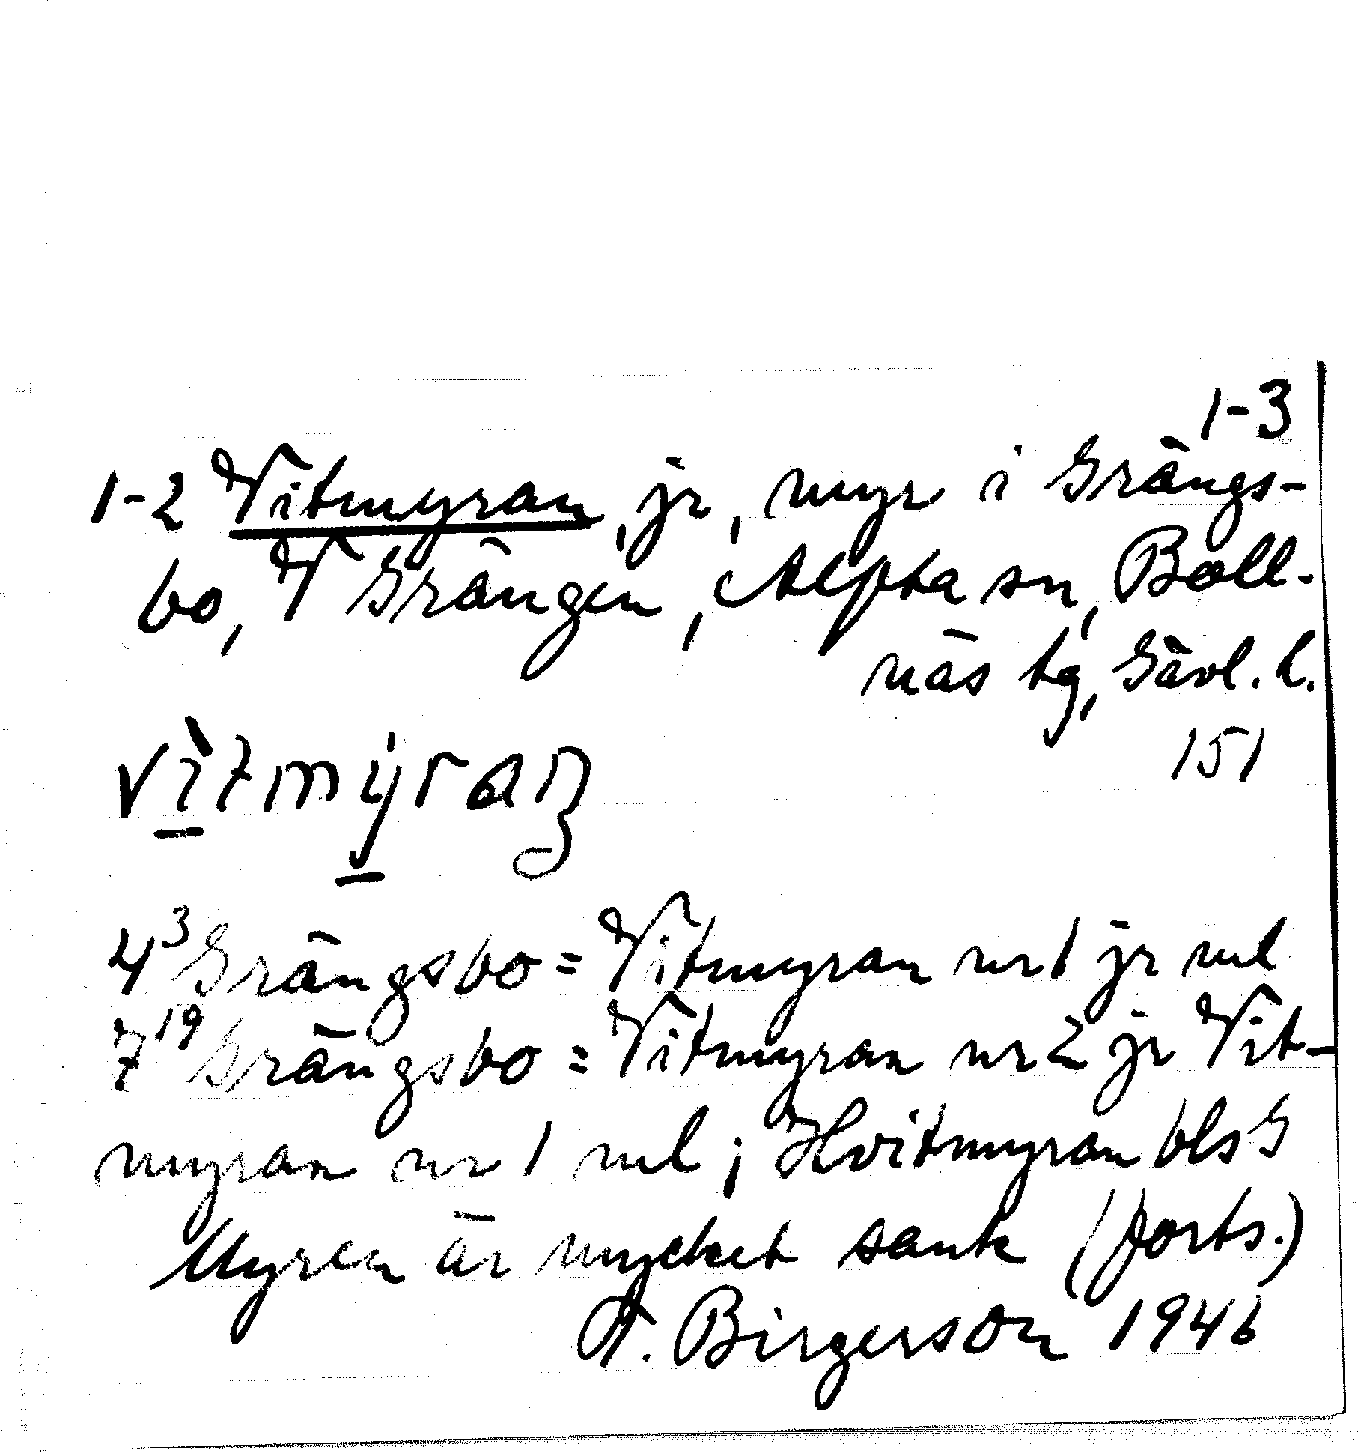 1-3
1-2 Vitmyran, jr, myr i Grängs-
bo, V Grängen, Alfta sn, Boll-
näs tg, Gävl. l.
151
vìtmýran
4³ Grängsbo = Vitmyran nr 1 jr ml
7¹⁹ Grängsbo = Vitmyran nr 2 jr Vit-
myran nr 1 ml; Hvitmyran bls G
Myren är mycket sank (forts.)
F. Birgerson 1946